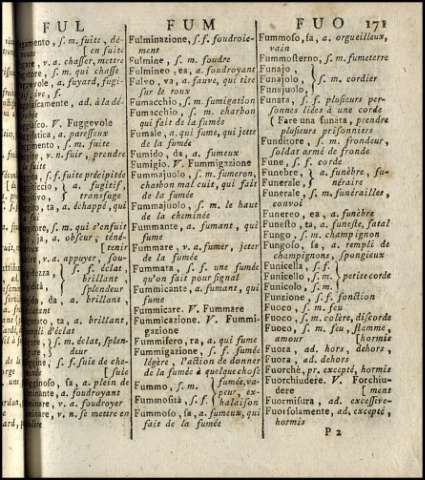 FUL FUM FUO 171
gamento, s. m. fuite, dé-
[en fuite
are, v. a. chasser, mettre
atore, s. m. qui chasse
gevole, a. fuyard, fugi-
s. f.
ad. à la dé-
V. Fuggevole
a. paresseux
s. m. fuite
v. n. fuir, prendre
la fuite
s. f. fuite précipitée
a. fugitif,
transfuge
ta, a. échappé, qui
s. m. qui s'enfuit
ja, a. obscur, téné-
[tenir
v. a. appuyer, sou-
s. f. éclat
brillant,
splendeur
da, a. brillant,
d'éclat
ta, a. brillant,
s. m. éclat, splen-
deur
s. f. suie de cha-
[suie
sa, a. plein de
a. foudroyant
v. a. foudroyer
v. n. se mettre en
Fulminazione, s. f. foudroie-
ment
Fulmine, s. m. foudre
Fulmineo, ea, a. foudroyant
Fulvo, va, a. fauve, qui tire
sur le roux
Fumacchio, s. m. fumigation
Fumacchio, s. m. charbon
qui fait de la fumée
Fumale, a. qui fume, qui jette
de la fumée
Fumido, da, a. fumeux
Fumigio. V. Fummigazione
Fumajuolo, s. m. fumeron,
charbon mal cuit, qui fait
de la fumée
Fummajuolo, s. m. le haut
de la cheminée
Fummante, a. fumant, qui
fume
Fummare, v. a. fumer, jeter
de la fumée
Fummata, s. f. une fumée
qu'on fait pour signal
Fummicante, a. fumant, qui
fume
Fummicare. V. Fummare
Fummicazione. V. Fummi-
gazione
Fummifero, ra, a. qui fume
Fummigazione, s. f. fumée
légère, l'action de donner
de la fumée à quelque chose
Fummo, s. m. { fumée, va-
Fummosità, s. f. { peur, ex-
halaison
Fummoso, sa, a. fumeux, qui
fait de la fumée
Fummoso, sa, a. orgueilleux,
vain
Fummosterno, s. m. fumeterre
Funajo,
Funajolo, } s. m. cordier
Funajuolo,
Funata, s. f. plusieurs per-
sonnes liées à une corde
(Fare una funata, prendre
plusieurs prisonniers
Funditore, s. m. frondeur,
soldat armé de fronde
Fune, s. f. corde
Funebre, } a. funèbre, fu-
Funerale, } néraire
Funerale, s. m. funérailles,
convoi
Funereo, ea, a. funèbre
Funesto, ta, a. funeste, fatal
Fungo, s. m. champignon
Fungoso, sa, a. rempli de
champignons, spongieux
Funicella, s. f.
Funicello, s. m. } petite corde
Funicolo, s. m.
Funzione, s. f. fonction
Fuoco, s. m. feu
Fuoco, s. m. colère, discorde
Fuoco, s. m. feu, flamme,
amour [hormis
Fuora, ad. hors, dehors,
Fuora, ad. dehors
Fuorchè, pr. excepté, hormis
Fuorchiudere. V. Forchiu-
dere [ment
Fuormisura, ad. excessive-
Fuorsolamente, ad. excepté,
hormis
P 2